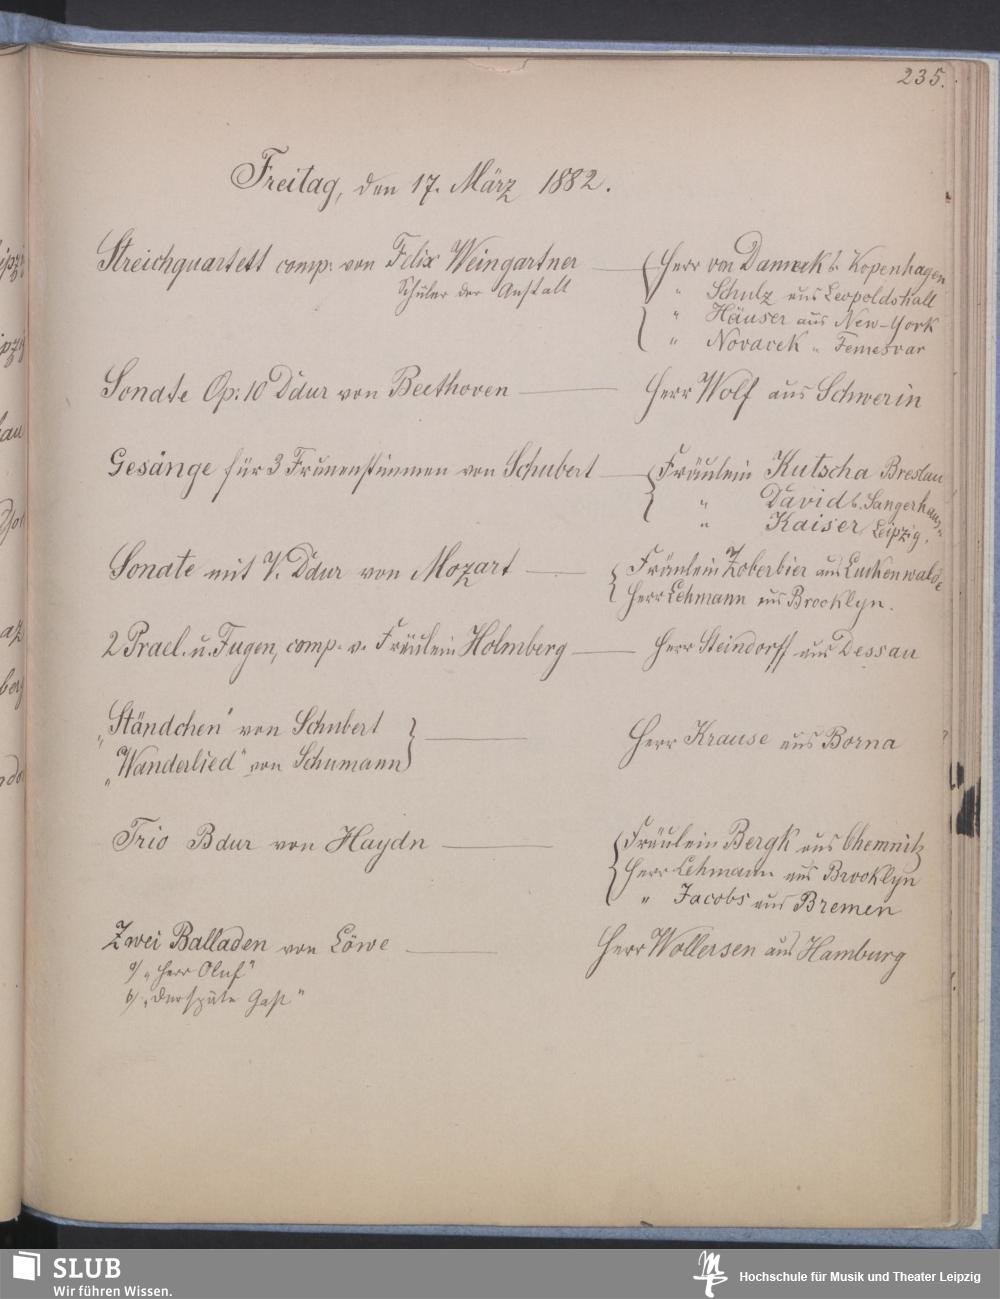 235.
Freitag, den 17. März 1882.
Streichquartett comp. von Felix Weingartner
Schüler der Anstalt
Herr von Dameck b. Kopenhagen
" Schulz aus Leopoldshall
" Häuser aus New-York
" Novacek " Temesvar
Sonate Op. 10 Ddur von Beethoven
Herr Wolf aus Schwerin
Gesänge für 3 Frauenstimmen von Schubert
Fräulein Kutscha Breslau
" David b. Sangerhaus.
" Kaiser Leipzig.
Sonate mit V. Ddur von Mozart
Fräulein Zoberbier aus Luckenwalde
Herr Lehmann aus Brooklyn.
2 Prael. u. Fugen, comp. v. Fräulein Holmberg
Herr Steindorff aus Dessau
„Ständchen" von Schubert
„Wanderlied" von Schumann
Herr Krause aus Borna
Trio Bdur von Haydn
Fräulein Bergk aus Chemnitz
Herr Lehmann aus Brooklyn
" Jacobs aus Bremen
Zwei Balladen von Löwe
a/ „Herr Oluf"
b/ „Der späte Gast"
Herr Wollersen aus Hamburg
SLUB
Wir führen Wissen.
Hochschule für Musik und Theater Leipzig